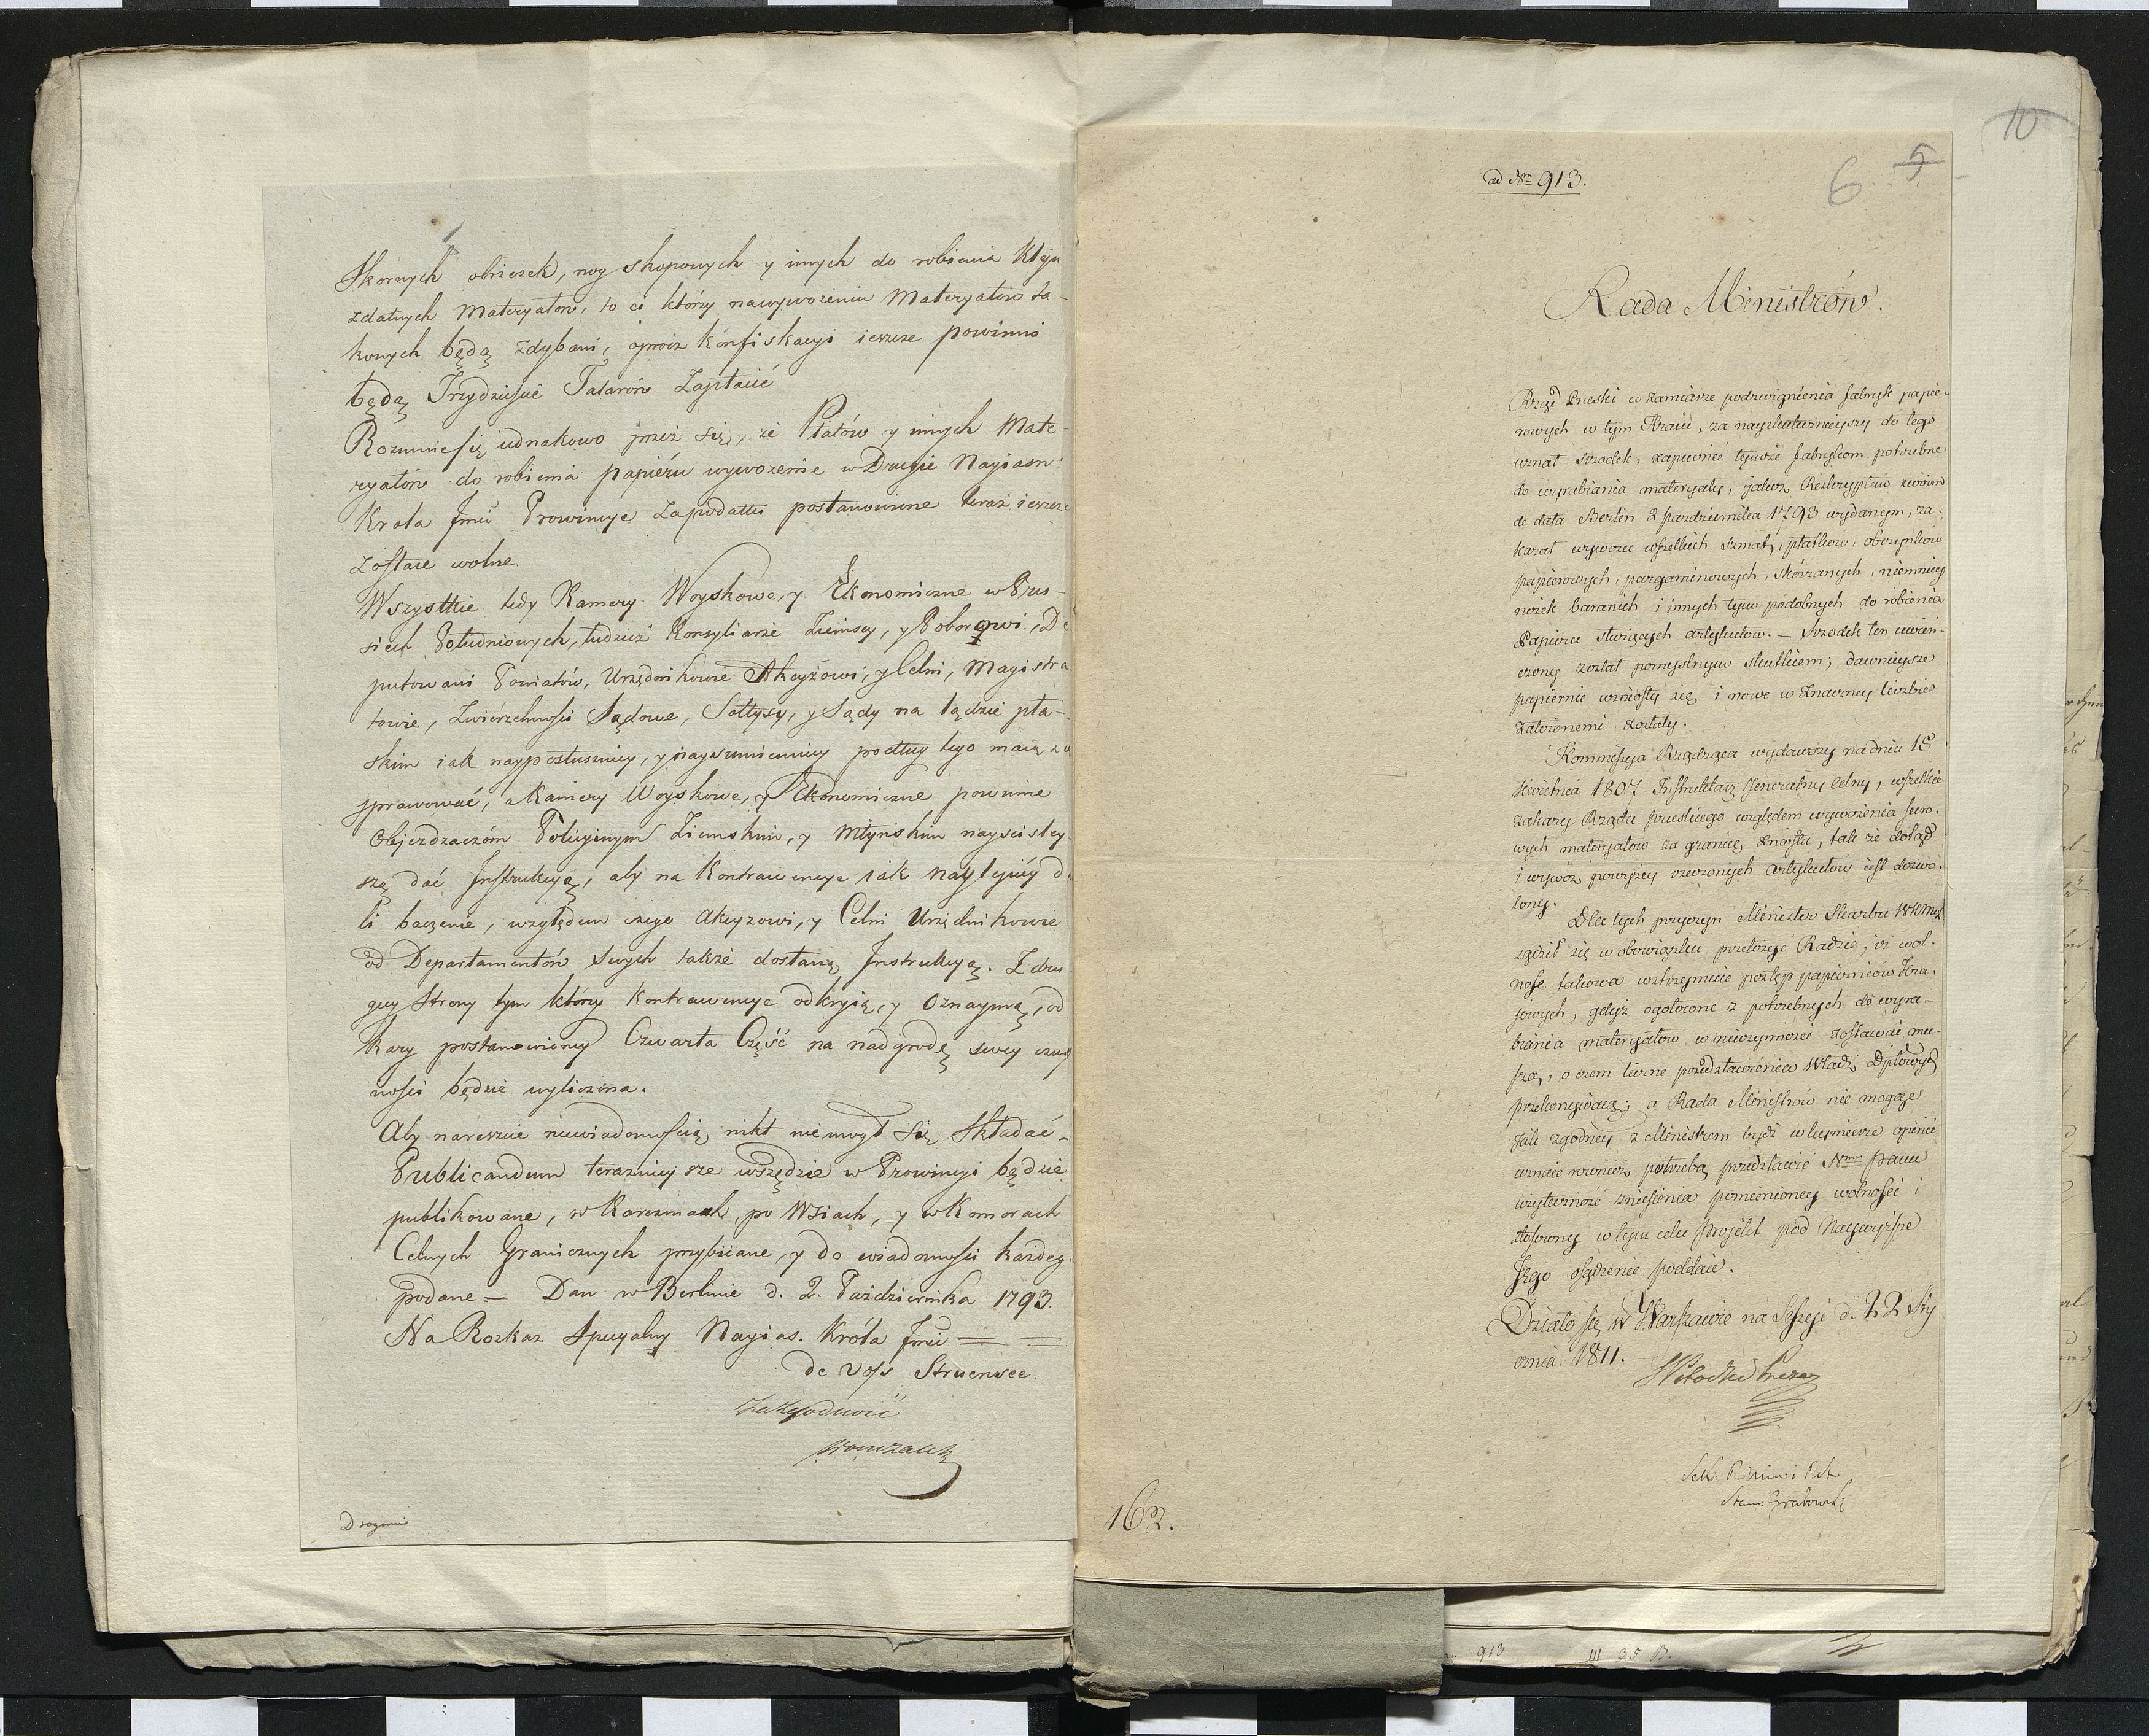 Skórnych obrzezek, nog skopowych y innych do robienia Kleju
zdatnych Materyałów, to ci którzy na wywożeniu Materyałów ta-
kowych będą zdybani, oprócz kónfiskacyi ieszcze powinni
będą Trzydzieście Talarów Zapłacić
Rozumie się iednakowo przez się, że Płatów y innych Mate-
ryałów do robienia papiéru wywożenie w Drugie Nayiasn:
Krola Jmci Prowincye Zapodatku postanowione teraz ieszcze
zostaie wolne.
Wszystkie tedy Kamery Woyskowe, y Ekonomiczne w Prus-
siech Południowych, tudzież Konsyliarze Ziemscy, y Poborowi, De
putowani Powiatów, Urzędnikowie Akcyżowi, y Celni, Magistra
towie, Zwierzchności Sądowe, Sołtysy, y Sądy na lądzie pła-
skim iak nayposłuszniey, y naysumienniey podług tego maią się
sprawować, a Kamery Woyskowe, y Ekonomiczne powinne
Objezdzaczóm Policyinym Ziemskim, y Młyńskim nayscisley-
szą dać Instrukcyą, aby na Kontrawencye iak naylepiéy da
li baczenie, względem czego Akcyzowi, y Celni Urzędnikowie
od Departamentów swych także dostaną Instrukcyą. Z dru
giey Strony tym którzy Kontrawencye odkryią, y Oznaymą, od
Kary postanowioney Czwarta Część na nadgrodę swey czuy
ności będzie wyliczona.
Aby nareszcie niewiadomością nikt nie mogł się Składać-
Publicandum teraznieysze wszędzie w Prowincyi będzie
publikowane, w Karczmach, po Wsiach, y w Komorach
Celnych Granicznych przybiiane, y do wiadomości każdeg
podane = Dan w Berlinie d. 2. Października 1793.
Na Rozkaz Specyalny Nayias. Króla Jmci = =
de Voss Struensee
Za Zgodność
Drogoni
ad Nrm 913.
6 5
10
Rada Ministrów.
Rząd Pruski w zamiarze podzwignienia fabryk papie-
rowych w tym Kraiu, za nayskutecznieyszy do tego
uznał srzodek, zapewnić tymże fabrykom potrzebne
do wyrabiania materyały, jakoż Reskryptem swoim
de dato Berlin 2 pazdziernika 1793 wydanym, za-
kazał wywozu wszelkich szmat, płatkow, obrzynkow
papierowych, pargaminowych, skórzanych, niemniey
nożek baranich i innych tym podobnych do robienia
Papieru służących artykułow. - Srzodek ten uwień-
czony został pomyslnym skutkiem; dawnieysze
papiernie wzniosły się i nowe w znaczney liczbie
założonemi zostały.
Kommissya Rządząca wydawszy na dniu 15
kwietnia 1807 Instruktarz Jeneralny Celny, wszelkie
zakazy Rządu pruskiego względem wywożenia suro-
wych materyałow za granicę zniosła, tak że dotąd
i wywóz powyżey rzeczonych artykułow iest dozwo-
lony.
Dla tych przyczyn Minister Skarbu
sądził się w obowiązku przełożyć Radzie, iż wol-
ność takowa wstrzymuie postęp papierniów Kra-
iowych, gdyż ogołocone z potrzebnych do wyra-
biania materyałow w nieczynności zostawać mu-
szą, o czem liczne przedstawienia Władz Dptowych
przekonywaią; a Rada Ministrów nie mogąc
jak zgodney z Ministrem bydź w tey mierze opinii
uznaie rownież potrzebę przedstawić Nmu Panu
użyteczność zniesienia pomienioney wolności i
stosowny w tym celu projekt pod Naywyższe
Jego osądzenie poddaie.
Działo się w Warszawie na Sessyi d. 22 Sty
cznia 1811.
Sek:
Stan: Grabowski
162.
913 III 25 B.